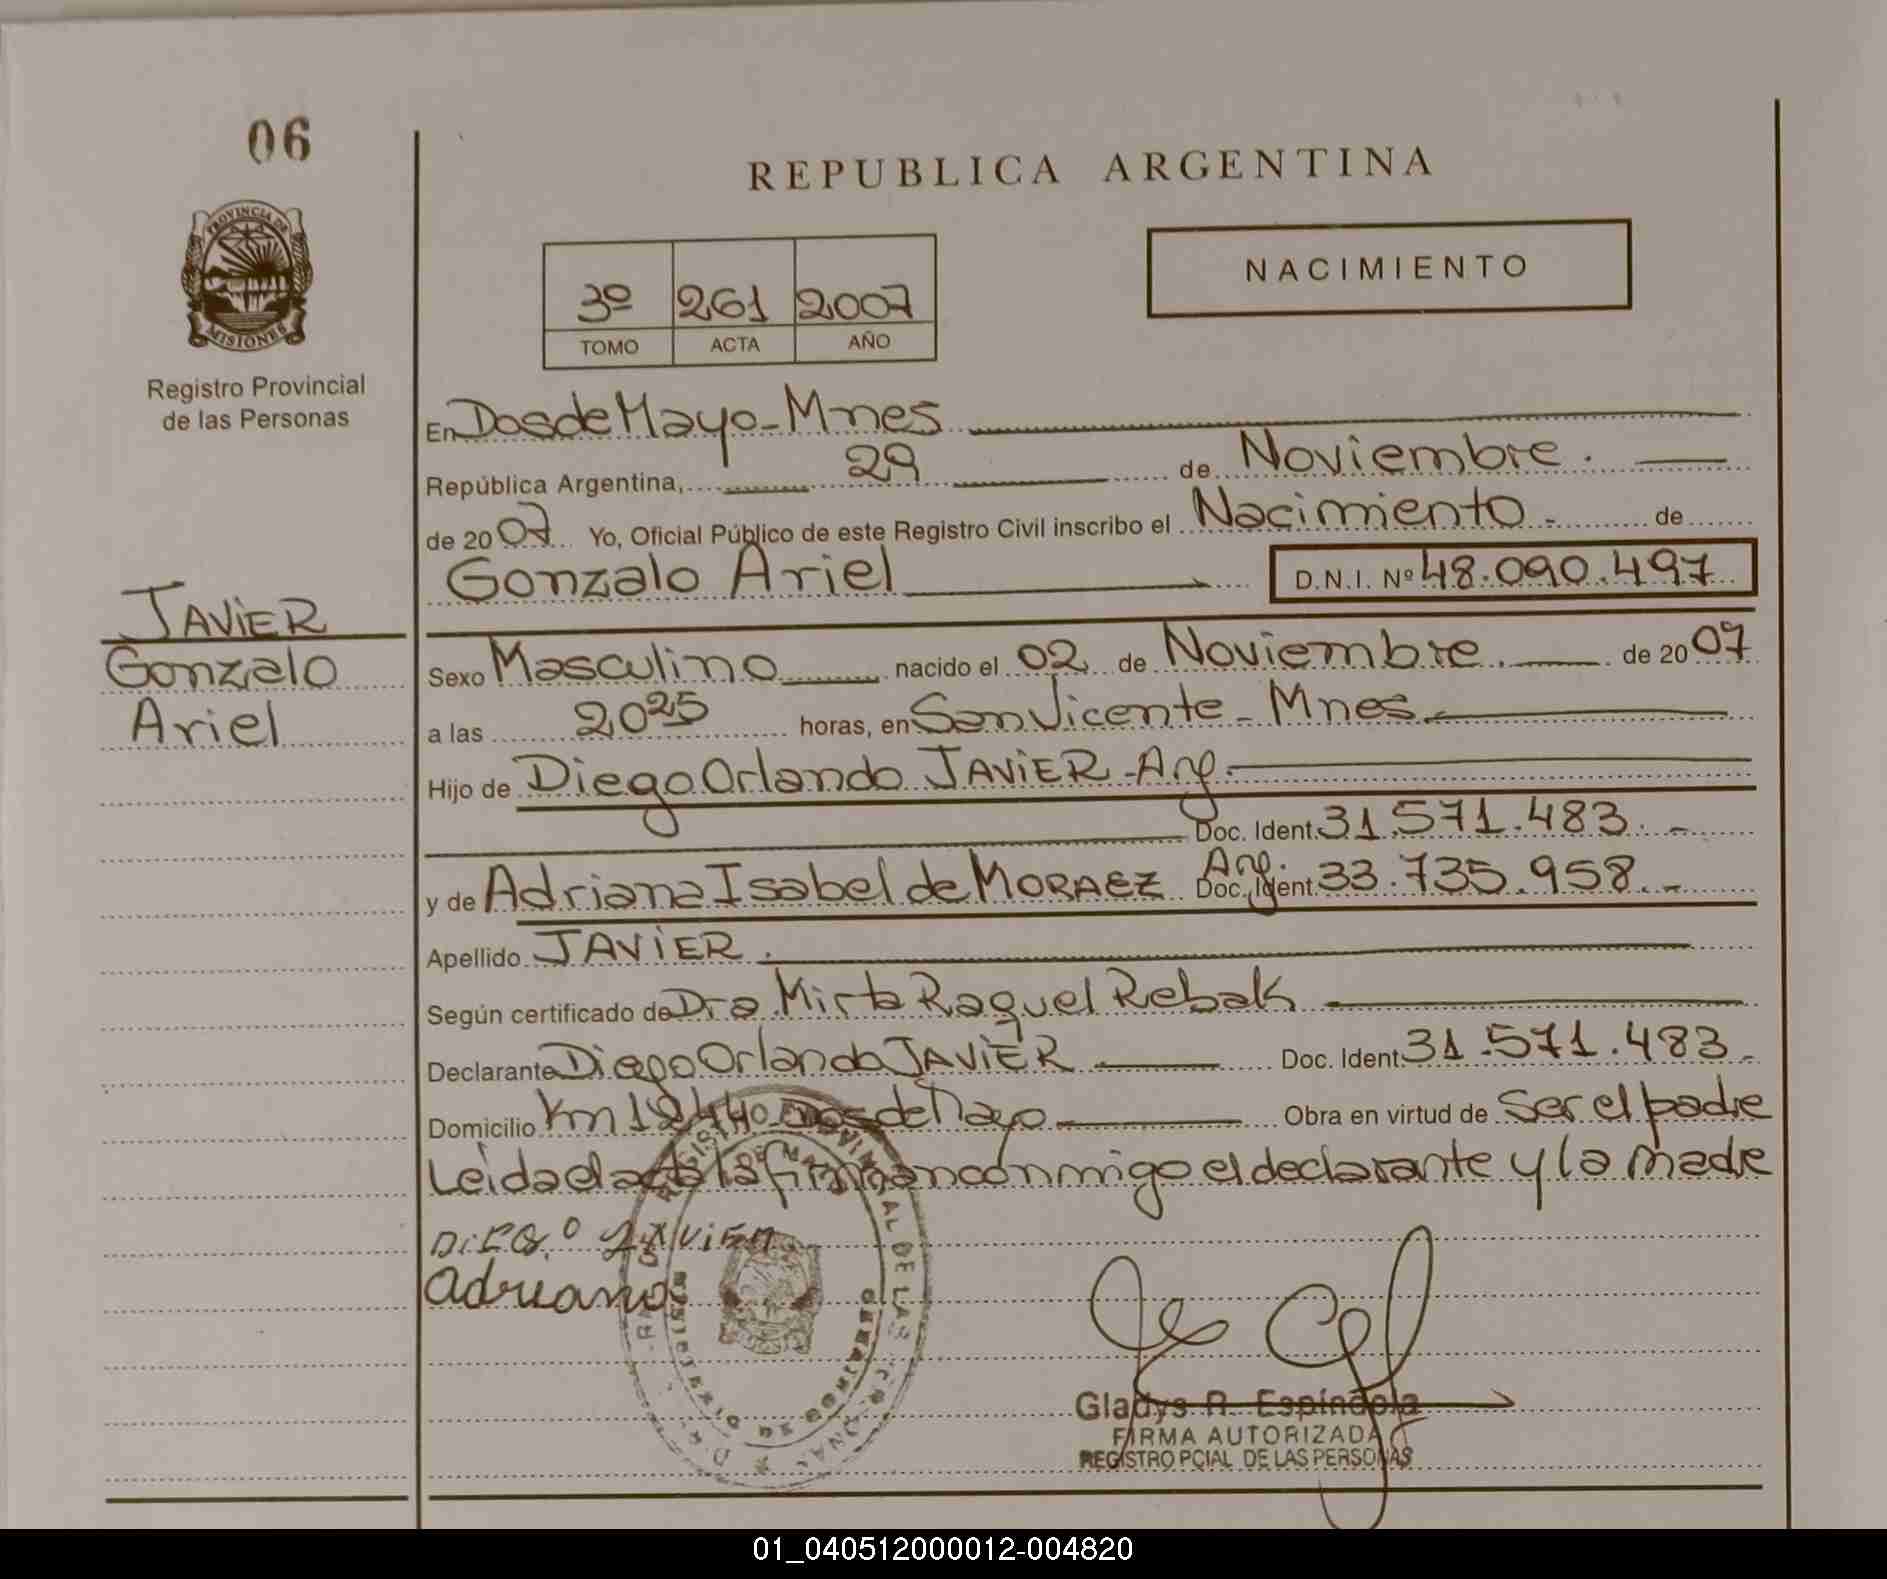 06
PROVINCIA DE
MISIONES
Registro Provincial
de las Personas
JAVIER
Gonzalo
Ariel
REPUBLICA ARGENTINA
3º 261 2007
TOMO ACTA AÑO
NACIMIENTO
En Dos de Mayo - Mnes
República Argentina, 29 de Noviembre.
de 2007 Yo, Oficial Público de este Registro Civil inscribo el Nacimiento - de
Gonzalo Ariel D.N.I. Nº 48.090.497
Sexo Masculino nacido el 02 de Noviembre. de 2007
a las 20 25 horas, en San Vicente - Mnes
Hijo de Diego Orlando JAVIER - Arg.
Doc. Ident. 31.571.483. -
y de Adriana Isabel de MORAEZ Arg. Doc. Ident. 33.735.958. -
Apellido JAVIER.
Según certificado de Dra. Mirta Raquel Rebak
Declarante Diego Orlando JAVIER Doc. Ident. 31.571.483. -
Domicilio Km 1244 Dos de Mayo Obra en virtud de Ser el padre
Leida el acta la firman conmigo el declarante y la madre
Adriana
Gladys R. Espíndola
FIRMA AUTORIZADA
REGISTRO PCIAL DE LAS PERSONAS
01_040512000012-004820